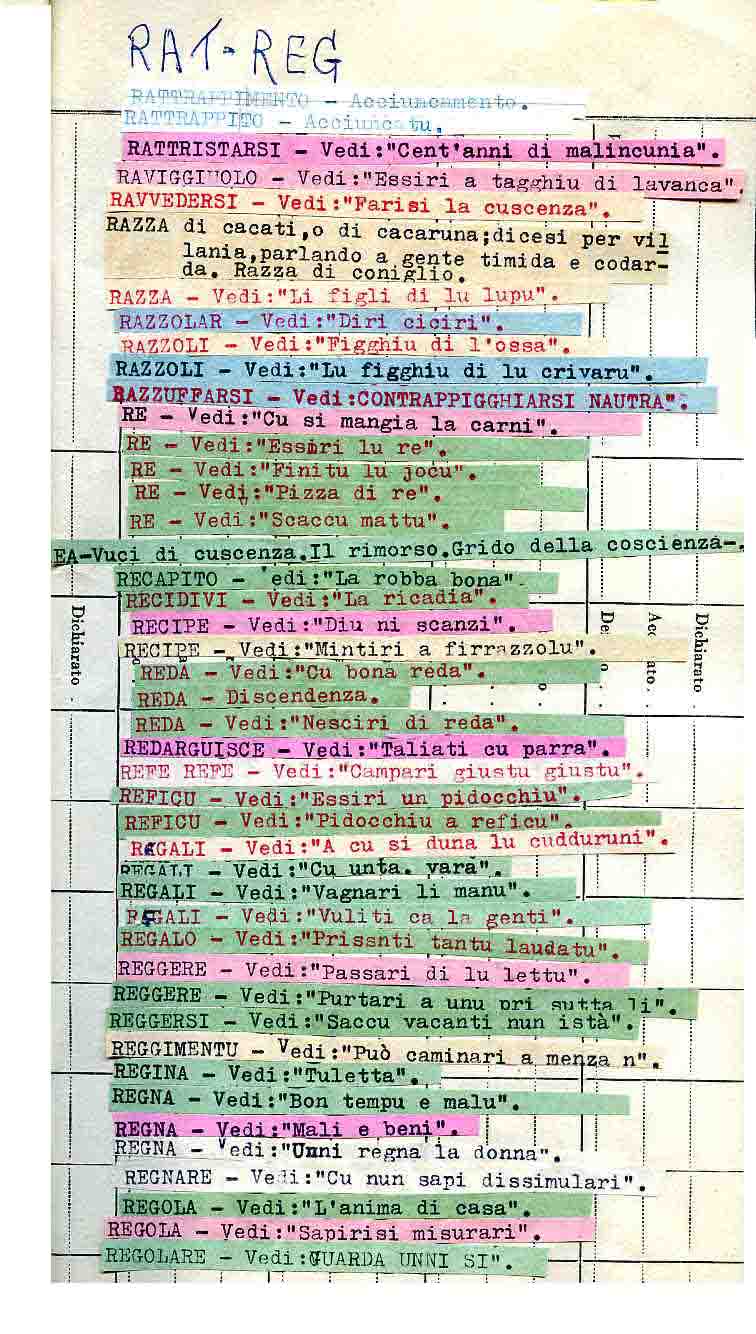 RAT-REG
RATTRAPPIMENTO - Acciuncamento.
RATTRAPPITO - Acciuncatu.
RATTRISTARSI - Vedi:"Cent'anni di malincunia".
RAVIGGIUOLO - Vedi:"Essiri a tagghiu di lavanca".
RAVVEDERSI - Vedi:"Farisi la cuscenza".
RAZZA di cacati,o di cacaruna;dicesi per vil
lania,parlando a gente timida e codar-
da. Razza di coniglio.
RAZZA - Vedi:"Li figli di lu lupu".
RAZZOLAR - Vedi:"Diri ciciri".
RAZZOLI - Vedi:"Figghiu di l'ossa".
RAZZOLI - Vedi:"Lu figghiu di lu crivaru".
RAZZUFFARSI - Vedi:CONTRAPPIGGHIARSI NAUTRA".
RE - Vedi:"Cu si mangia la carni".
RE - Vedi:"Essiri lu re".
RE - Vedi:"Finitu lu jocu".
RE - Vedi:"Pizza di re".
RE - Vedi:"Scaccu mattu".
EA-Vuci di cuscenza.Il rimorso.Grido della coscienza-.
RECAPITO - edi:"La robba bona"
RECIDIVI - Vedi:"La ricadia".
RECIPE - Vedi:"Diu ni scanzi".
RECIPE - Vedi:"Mintiri a firrazzolu".
REDA - Vedi:"Cu bona reda".
REDA - Discendenza.
REDA - Vedi:"Nesciri di reda".
REDARGUISCE - Vedi:"Taliati cu parra".
REFE REFE - Vedi:"Campari giustu giustu".
REFICU - Vedi:"Essiri un pidocchiu".
REFICU - Vedi:"Pidocchiu a reficu".
REGALI - Vedi:"A cu si duna lu cudduruni".
REGALI - Vedi:"Cu unta. vara".
REGALI - Vedi:"Vagnari li manu".
REGALI - Vedi:"Vuliti ca la genti".
REGALO - Vedi:"Prissnti tantu laudatu".
REGGERE - Vedi:"Passari di lu lettu".
REGGERE - Vedi:"Purtari a unu pri sutta li".
REGGERSI - Vedi:"Saccu vacanti nun istà".
REGGIMENTU - Vedi:"Può caminari a menza n".
REGINA - Vedi:"Tuletta".
REGNA - Vedi:"Bon tempu e malu".
REGNA - Vedi:"Mali e beni".
REGNA - Vedi:"Unni regna la donna".
REGNARE - Vedi:"Cu nun sapi dissimulari".
REGOLA - Vedi:"L'anima di casa".
REGOLA - Vedi:"Sapirisi misurari".
REGOLARE - Vedi:GUARDA UNNI SI".
Dichiarato
Dichiarato